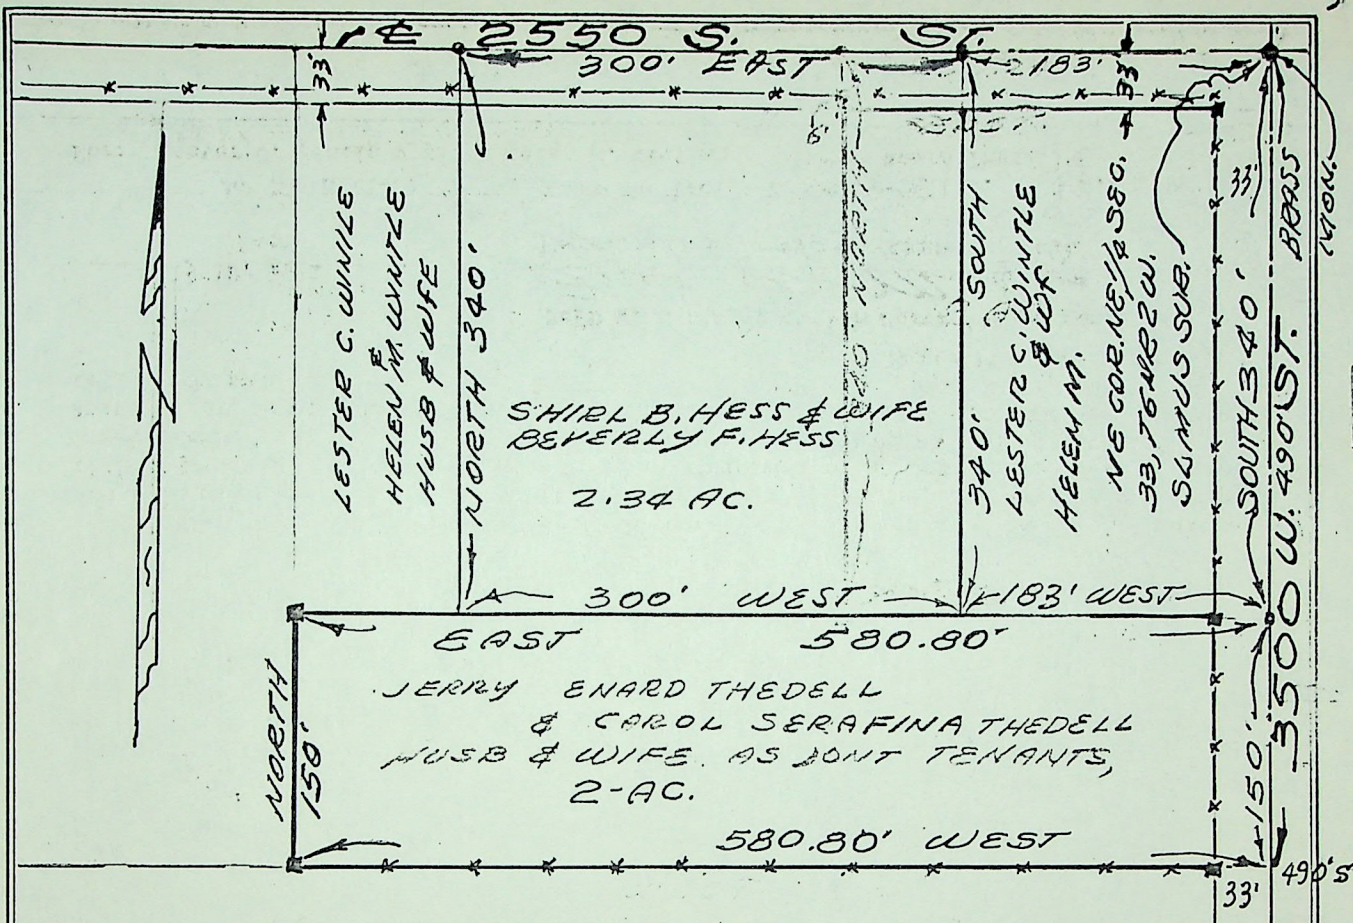 2550 S. ST.
33'
300' EAST
2183'
33'
6'
LESTER C. WINILE
&
HELEN M. WINTLE
HUSB & WIFE
NORTH 340'
SHIRL B. HESS & WIFE
BEVERLY F. HESS
2.34 AC.
340' SOUTH
LESTER C. WINTLE
& WF
HELEM M.
NE COR. NE 1/4 SEC.
33, T6N R2W.
SLMUS SUB.
33'
SOUTH 340'
BRASS
MON.
3500 W. 490' ST.
300' WEST
183' WEST
EAST 580.80'
JERRY ENARD THEDELL
& CAROL SERAFINA THEDELL
HUSB & WIFE. AS JONT TENANTS,
2-AC.
NORTH
150'
150'
580.80' WEST
33'
490'S